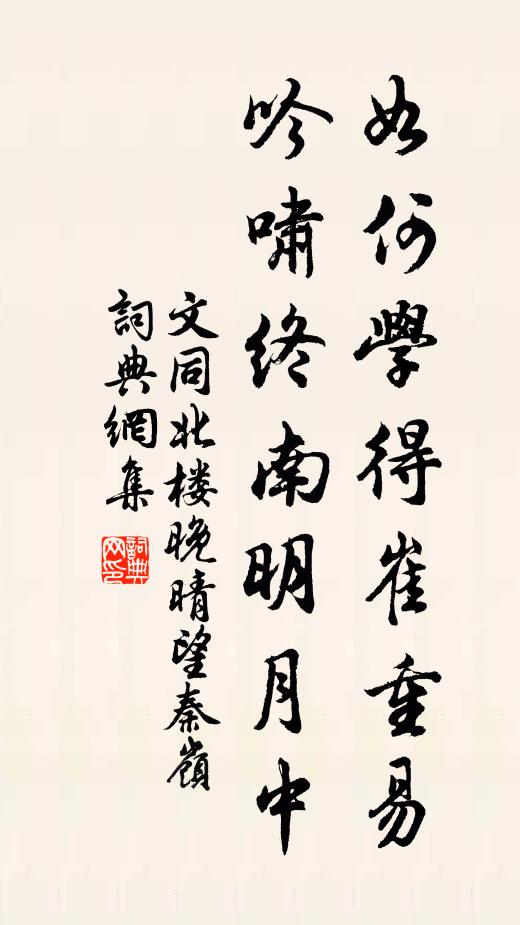 如何學得崔重易
吟嘯終南明月中
文同北楼晚晴望秦嶺
詞典網集
詞典网印